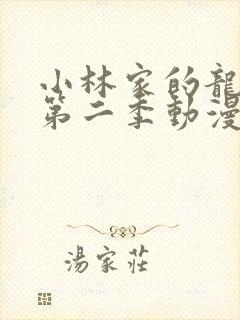 小林家的龍
第二季動漫
湯家莊